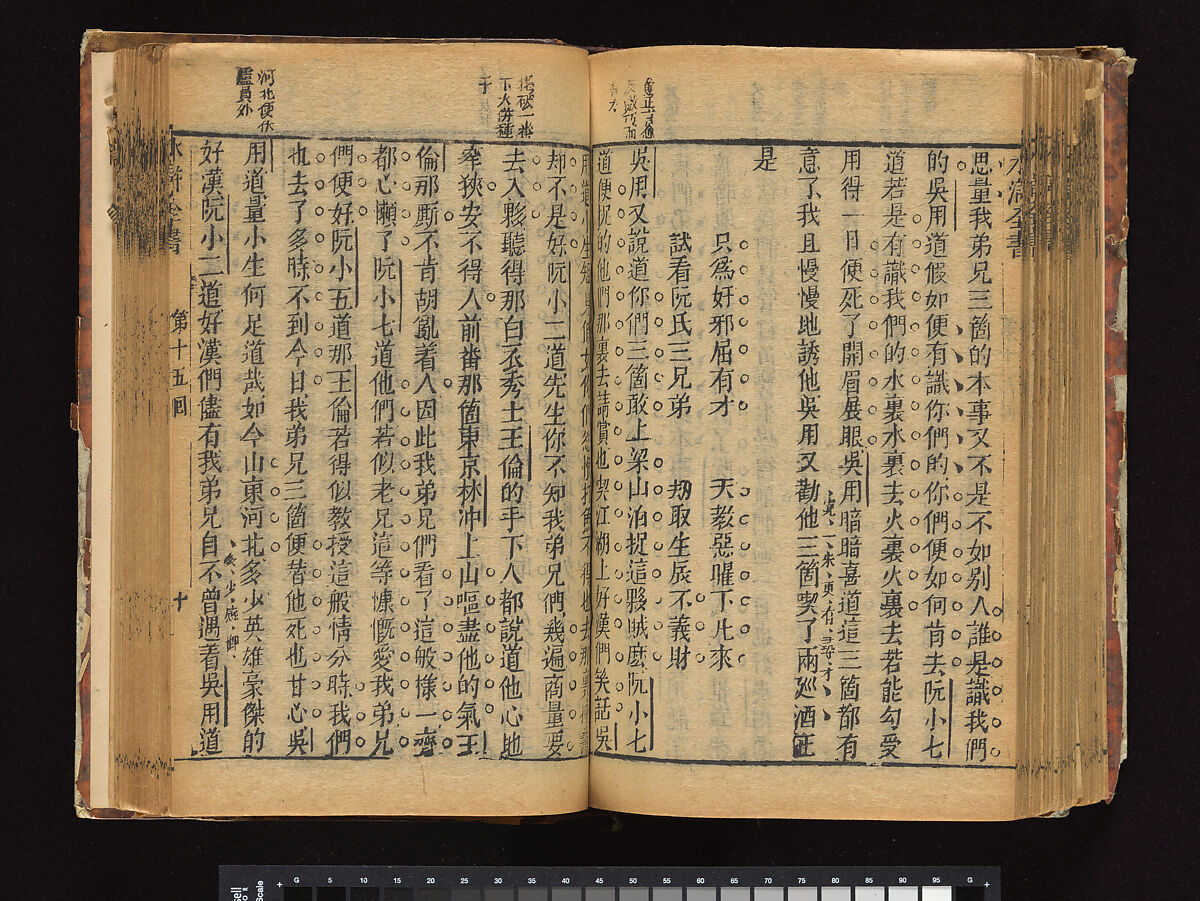 思量我弟兄三箇的本事又不是不如别人誰是識我們
的吳用道假如便有識你們的你們便如何肯去阮小七
道若是有識我們的水裏水裏去火裏火裏去若能勾受
用得一日便死了開眉展眼吳用暗暗喜道這三箇都有
意了我且慢慢地誘他吳用又勸他三箇喫了兩廵酒正
是
只爲奸邪屈有才 天教惡曜下凡來
試看阮氏三兄弟 刼取生辰不義財
吳用又說道你們三箇敢上梁山泊捉這夥賊麽阮小七
道便捉的他們那裏去請賞也喫江湖上好漢們笑話吳
却不是好阮小二道先生你不知我弟兄們幾遍商量要
去入夥聽得那白衣秀士王倫的手下人都說道他心地
窄狹安不得人前番那箇東京林冲上山嘔盡他的氣王
倫那厮不肯胡亂着人因此我弟兄們看了這般樣一齊
都心懶了阮小七道他們若似老兄這等慷慨愛我弟兄
們便好阮小五道那王倫若得似教授這般情分時我們
也去了多時不到今日我弟兄三箇便替他死也甘心吳
用道量小生何足道哉如今山東河北多少英雄豪傑的
好漢阮小二道好漢們儘有我弟兄自不曾遇着吳用道
河北便伏
盧員外
水滸全書
第十五回
十